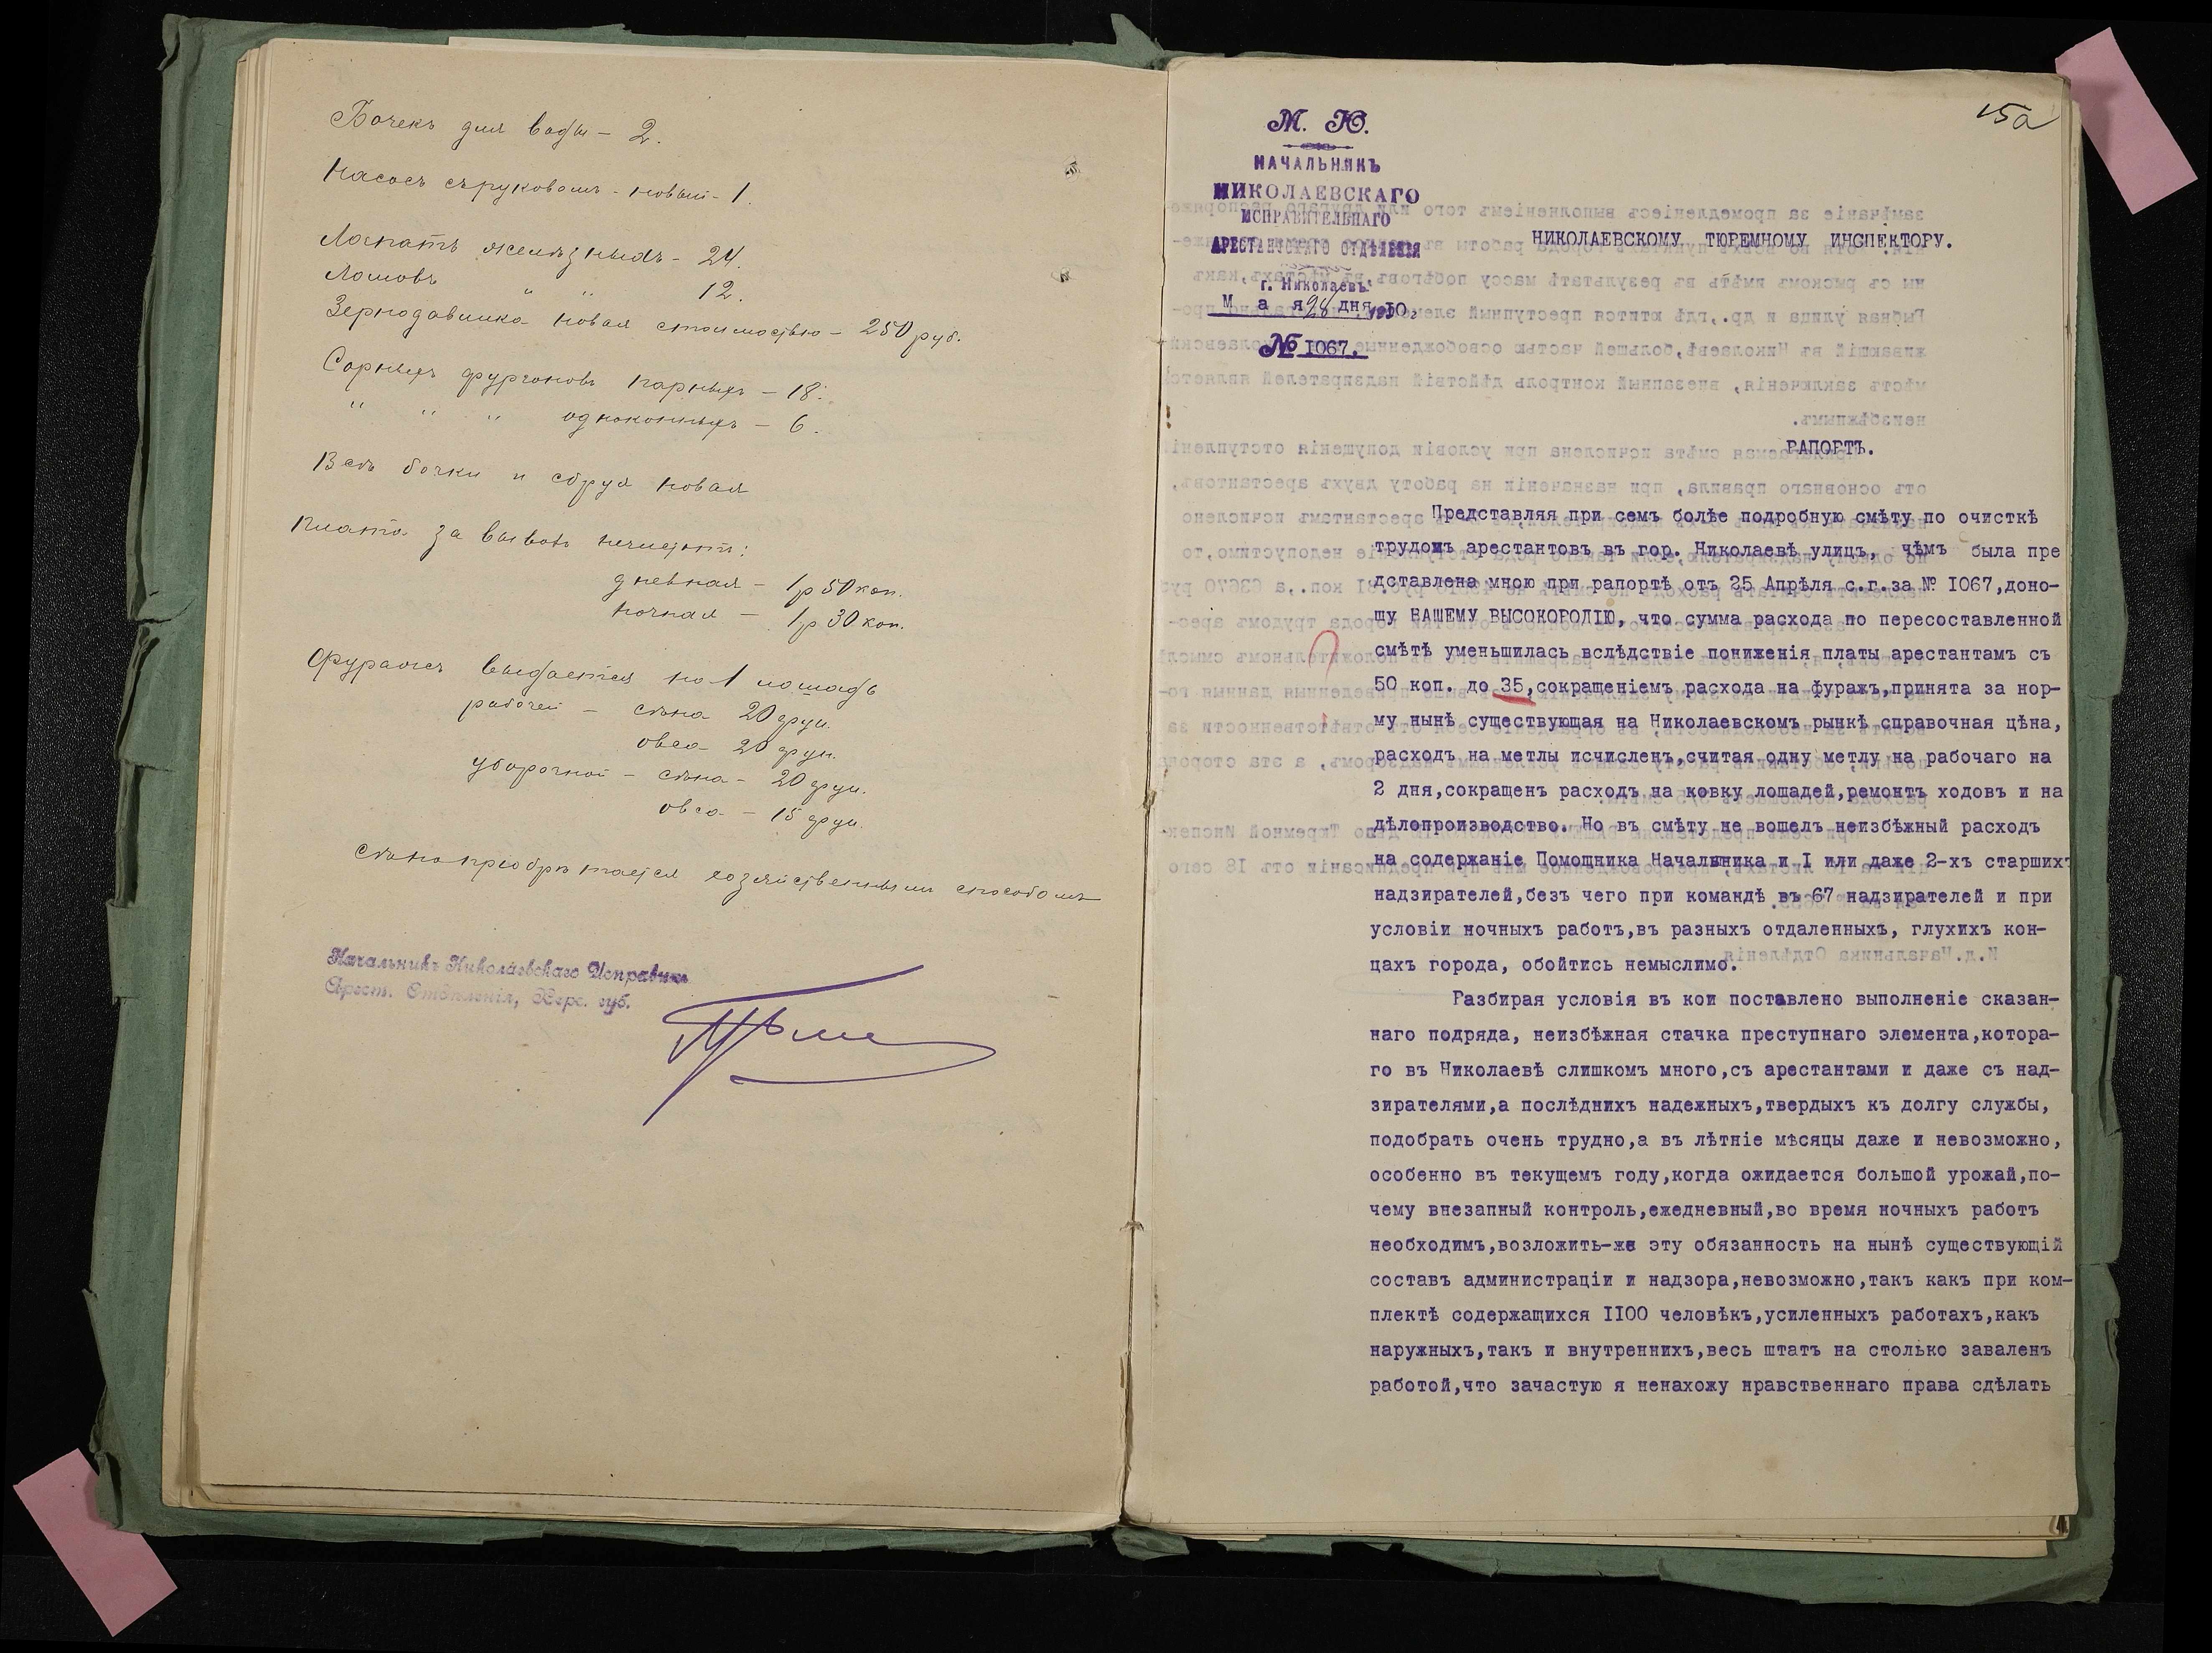 Бочекъ для воды – 2.
Насосъ съ рукавомъ – новый – 1.
Лопатъ желѣзныхъ – 24.
Ломовъ " " 12.
Зернодавилка новая стоимостью – 250 руб.
Сорныхъ фургоновъ парныхъ – 18.
" " " одноконныхъ – 6.
Всѣ бочки и сбруя новая
Плата за вывозъ нечистот:
дневная – 1р 50 коп.
ночная – 1р 30 коп.
Фуражъ выдается на 1 лошадь
рабочей – сѣна 20 фун.
овса 20 фун.
уборочной – сѣна – 20 фун.
овса – 15 фун.
Сѣно приобрѣтается хозяйственнымъ способомъ
Начальникъ Николаевскаго Исправит.
Арест. Отдѣленія, Херс. губ.
15а
М. Ю.
НАЧАЛЬНИКЪ
НИКОЛАЕВСКАГО
ИСПРАВИТЕЛЬНАГО
АРЕСТАНТСКАГО ОТДѢЛЕНІЯ
г. Николаевъ.
М а я 28 дня 1910 г
№ 1067.
НИКОЛАЕВСКОМУ ТЮРЕМНОМУ ИНСПЕКТОРУ.
РАПОРТЪ.
Представляя при семъ болѣе подробную смѣту по очисткѣ
трудомъ арестантовъ въ гор. Николаевѣ улицъ, чѣмъ была пре
дставлена мною при рапортѣ отъ 25 Апрѣля с.г.за № 1067,доно-
шу ВАШЕМУ ВЫСОКОРОДІЮ, что сумма расхода по пересоставленной
смѣтѣ уменьшилась вслѣдствіе пониженія платы арестантамъ съ
50 коп. до 35,сокращеніемъ расхода на фуражъ,принята за нор-
му нынѣ существующая на Николаевскомъ рынкѣ справочная цѣна,
расходъ на метлы исчисленъ,считая одну метлу на рабочаго на
2 дня,сокращенъ расходъ на ковку лошадей,ремонтъ ходовъ и на
дѣлопроизводство. Но въ смѣту не вошелъ неизбѣжный расходъ
на содержаніе Помощника Начальника и I или даже 2-хъ старшихъ
надзирателей,безъ чего при командѣ въ 67 надзирателей и при
условіи ночныхъ работъ,въ разныхъ отдаленныхъ, глухихъ кон-
цахъ города, обойтись немыслимо.
Разбирая условія въ кои поставлено выполненіе сказан-
наго подряда, неизбѣжная стачка преступнаго элемента,котора-
го въ Николаевѣ слишкомъ много,съ арестантами и даже съ над-
зирателями,а послѣднихъ надежныхъ,твердыхъ къ долгу службы,
подобрать очень трудно,а въ лѣтніе мѣсяцы даже и невозможно,
особенно въ текущемъ году,когда ожидается большой урожай,по-
чему внезапный контроль,ежедневный,во время ночныхъ работъ
необходимъ,возложить-же эту обязанность на нынѣ существующій
составъ администраціи и надзора,невозможно,такъ какъ при ком-
плектѣ содержащихся II00 человѣкъ,усиленныхъ работахъ,какъ
наружныхъ,такъ и внутреннихъ,весь штатъ на столько заваленъ
работой,что зачастую я ненахожу нравственнаго права сдѣлать